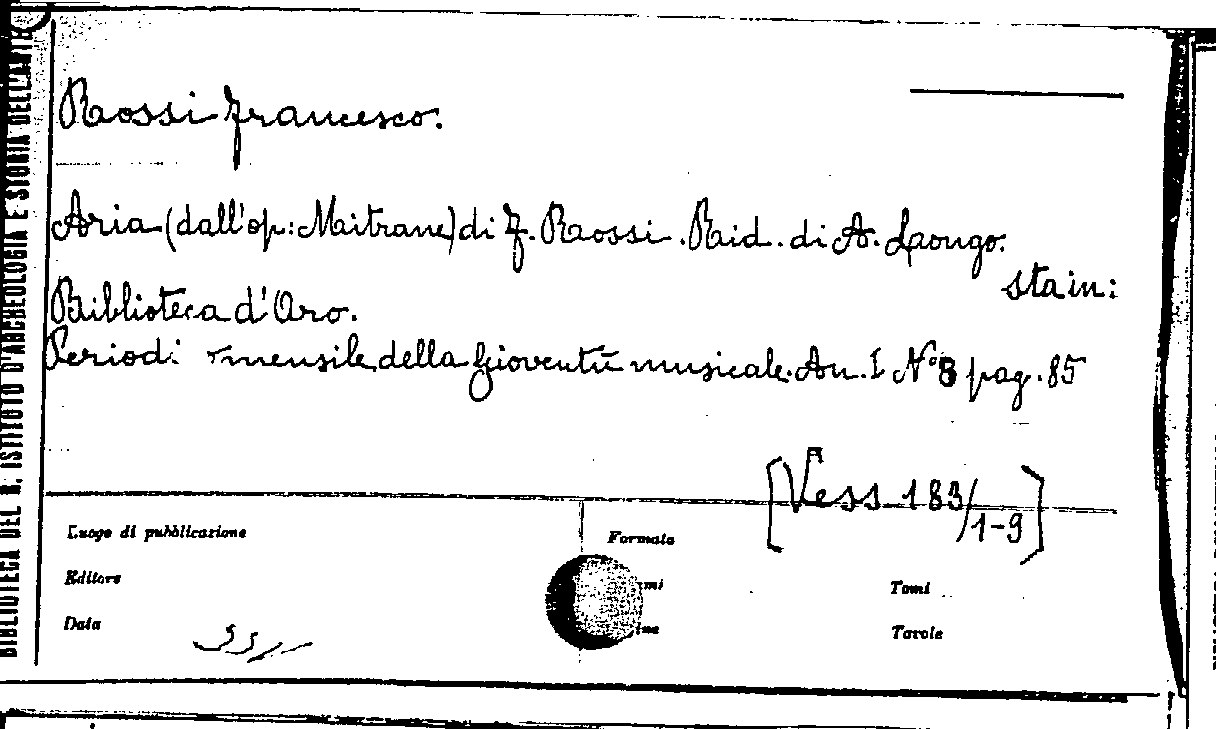 BIBLIOTECA DEL R. ISTITUTO D'ARCHEOLOGIA E STORIA DELL'ARTE
Rossi Francesco.
Aria (dall'op: Mitrane) di F. Rossi. Rid. di A. Longo.
sta in:
Biblioteca d'Oro.
Period: mensile della Gioventù musicale. An. I N° 8 pag. 85
[Vess 183/1-9]
Luogo di pubblicazione
Formato
Editore
Tomi
Data
Tavole